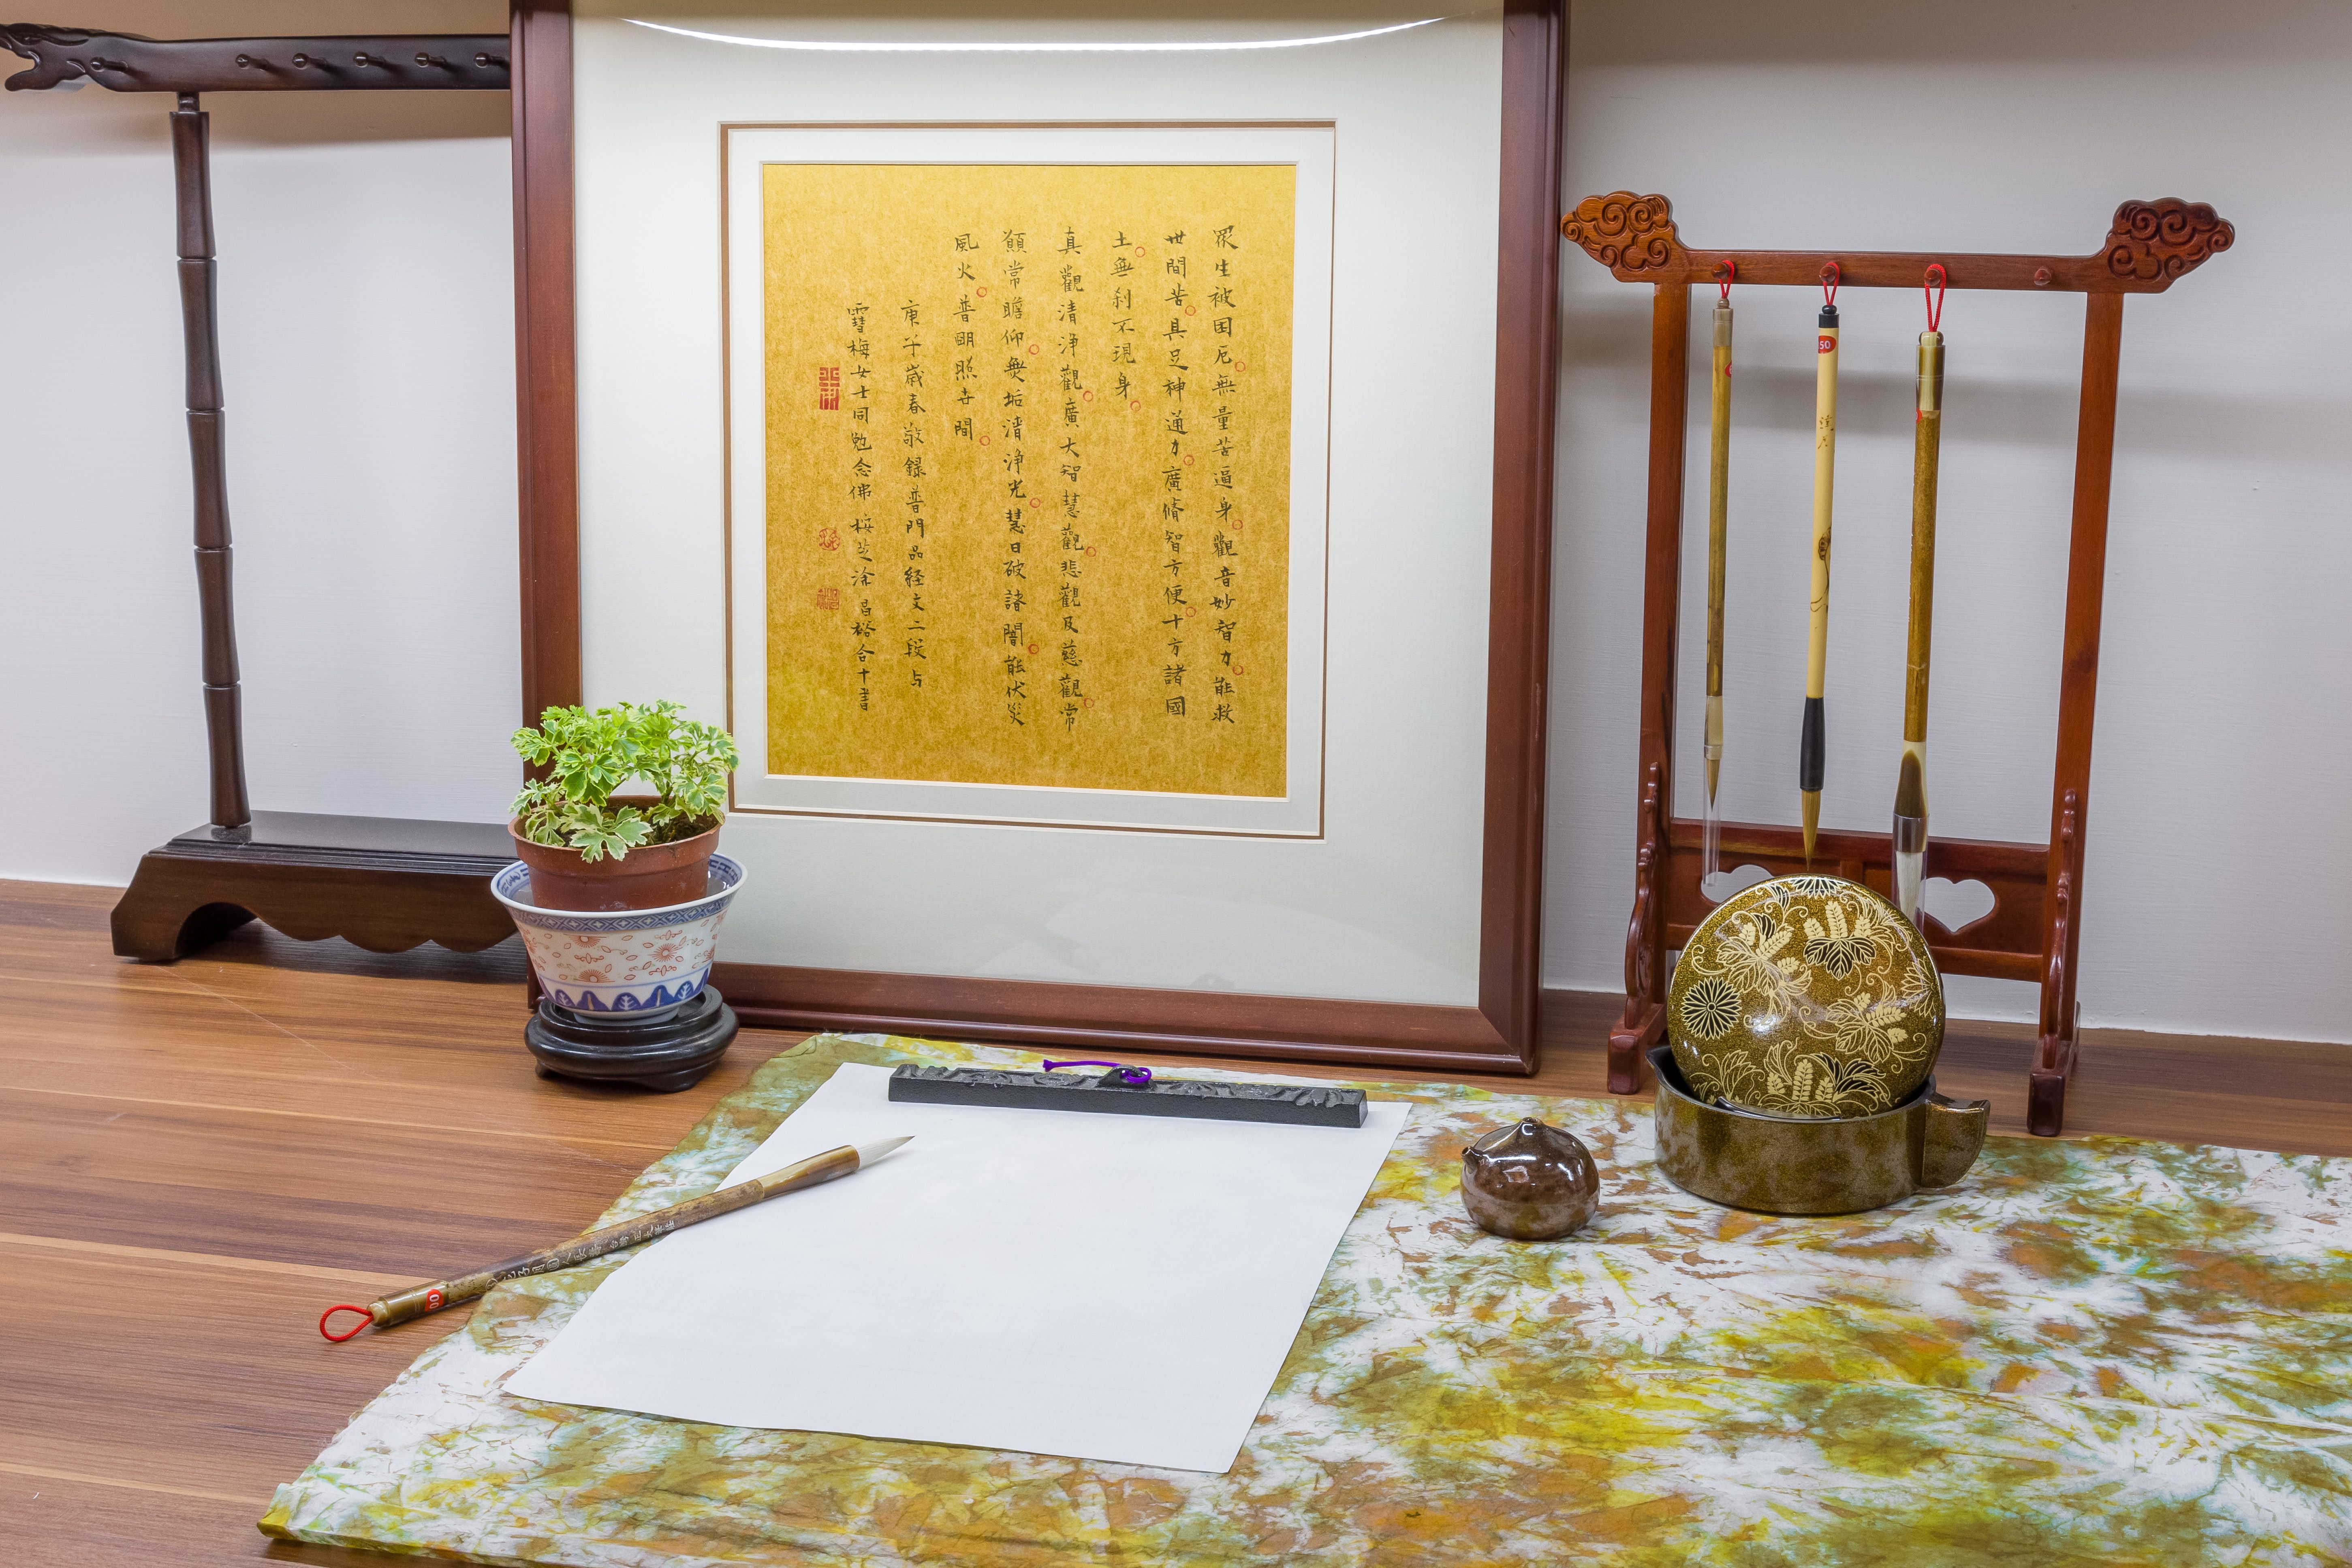 眾生被困厄無量苦逼身觀音妙智力能救
世間苦具足神通力廣脩智方便十方諸國
土無剎不現身
真觀清淨觀廣大智慧觀悲觀及慈觀常
願常瞻仰無垢清淨光慧日破諸闇能伏災
風火普明照世間
庚午歲春敬錄普門品経文二段与
雪梅女士同勉念佛 梅芝涂昌裕合十書
50
00